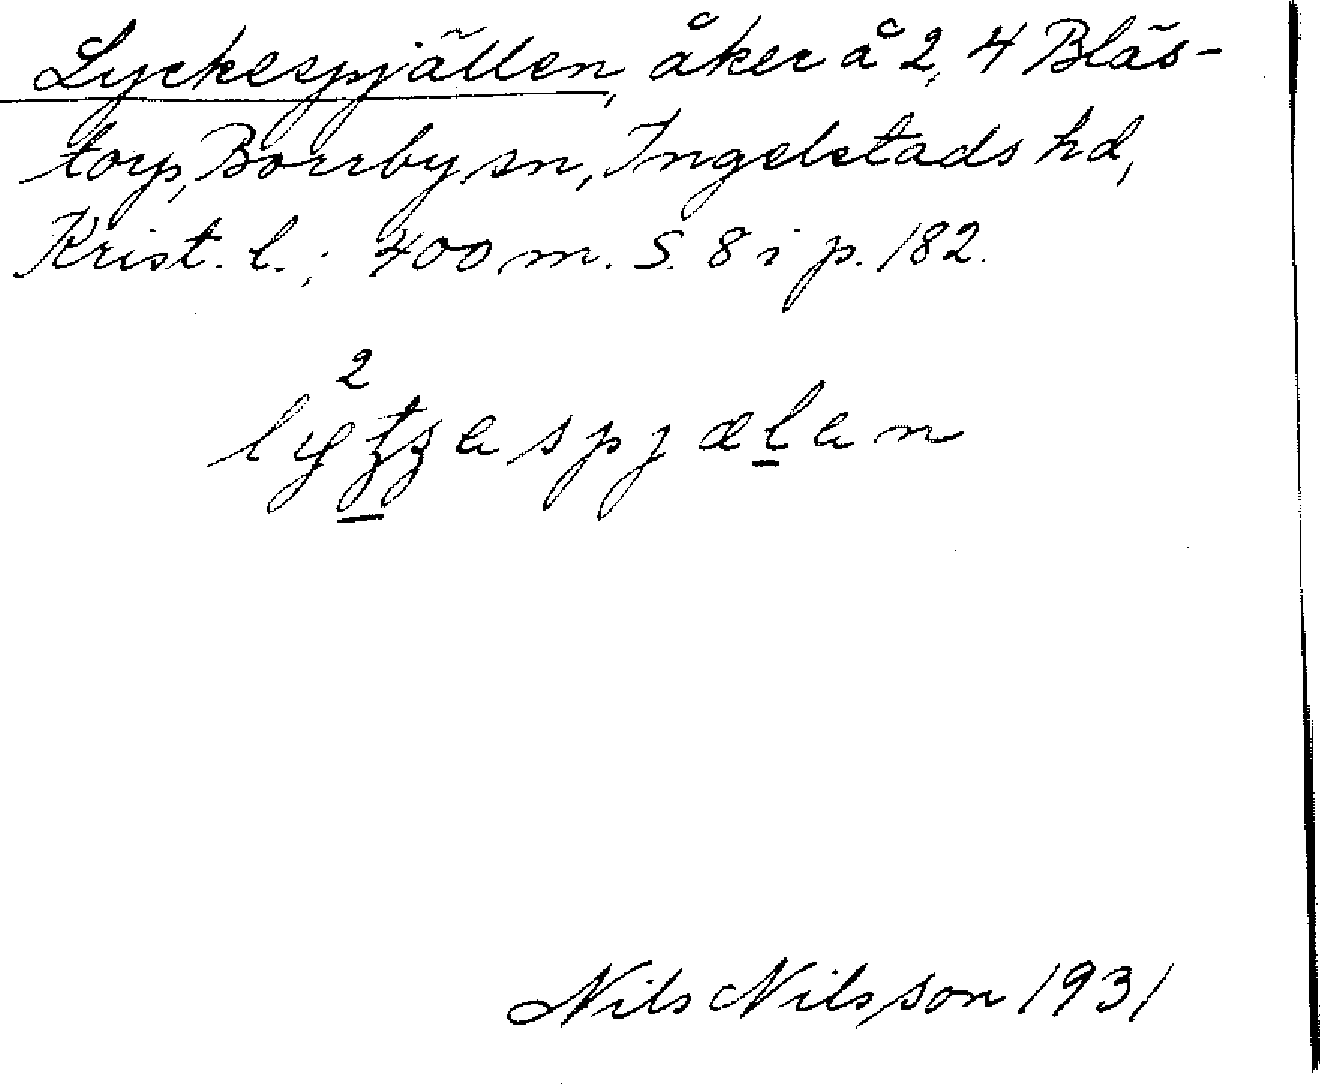 Lyckespjällen, åker å 2, 4 Bläs-
torp, Borrby sn, Ingelstads hd,
Krist. l.; 400 m. S. 8 i p. 182.
2
Nils Nilsson 1931